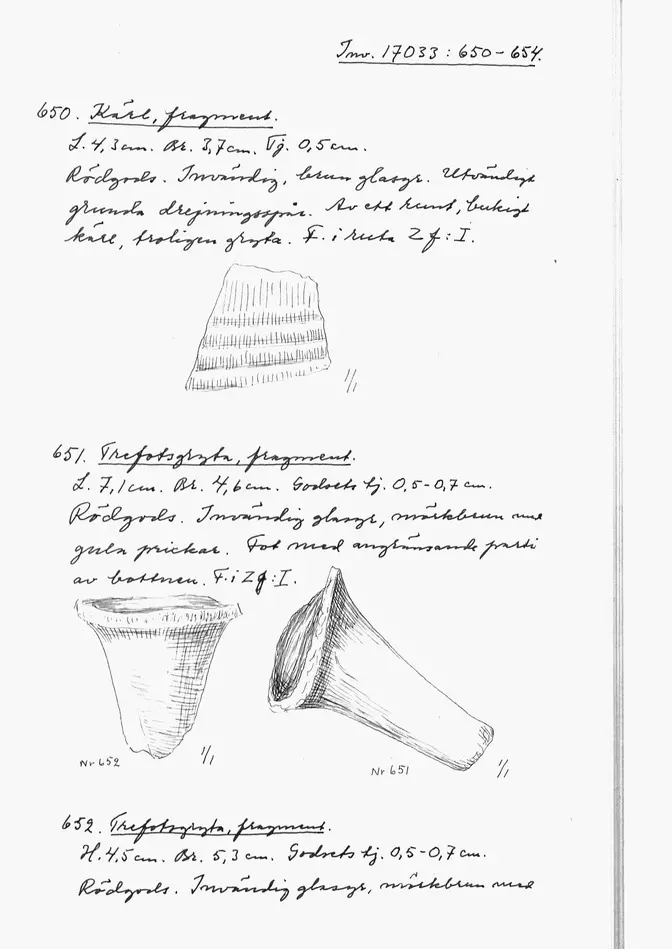 Inv. 17033 : 650 - 654.
650. Kärl, fragment.
L. 4,3 cm. Br. 3,7 cm. Tj. 0,5 cm.
Rödgods. Invändig, brun glasyr. Utvändigt
grunda drejningsspår. Av ett runt, bukigt
kärl, troligen gryta. F. i ruta Z f : I.
1/1
651. Trefotsgryta, fragment.
L. 7,1 cm. Br. 4,6 cm. Godsets tj. 0,5 - 0,7 cm.
Rödgods. Invändig glasyr, mörkbrun med
gula prickar. Fot med angränsande parti
av bottnen. F. i Z f : I.
Nr 652 1/1
Nr 651 1/1
652. Trefotsgryta, fragment.
H. 4,5 cm. Br. 5,3 cm. Godsets tj. 0,5 - 0,7 cm.
Rödgods. Invändig glasyr, mörkbrun med